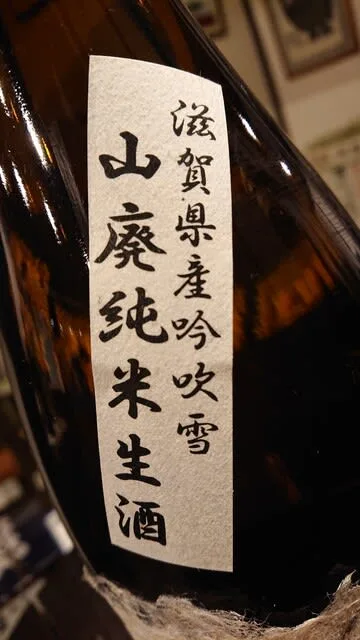 滋賀県産吟吹雪
山廃純米生酒